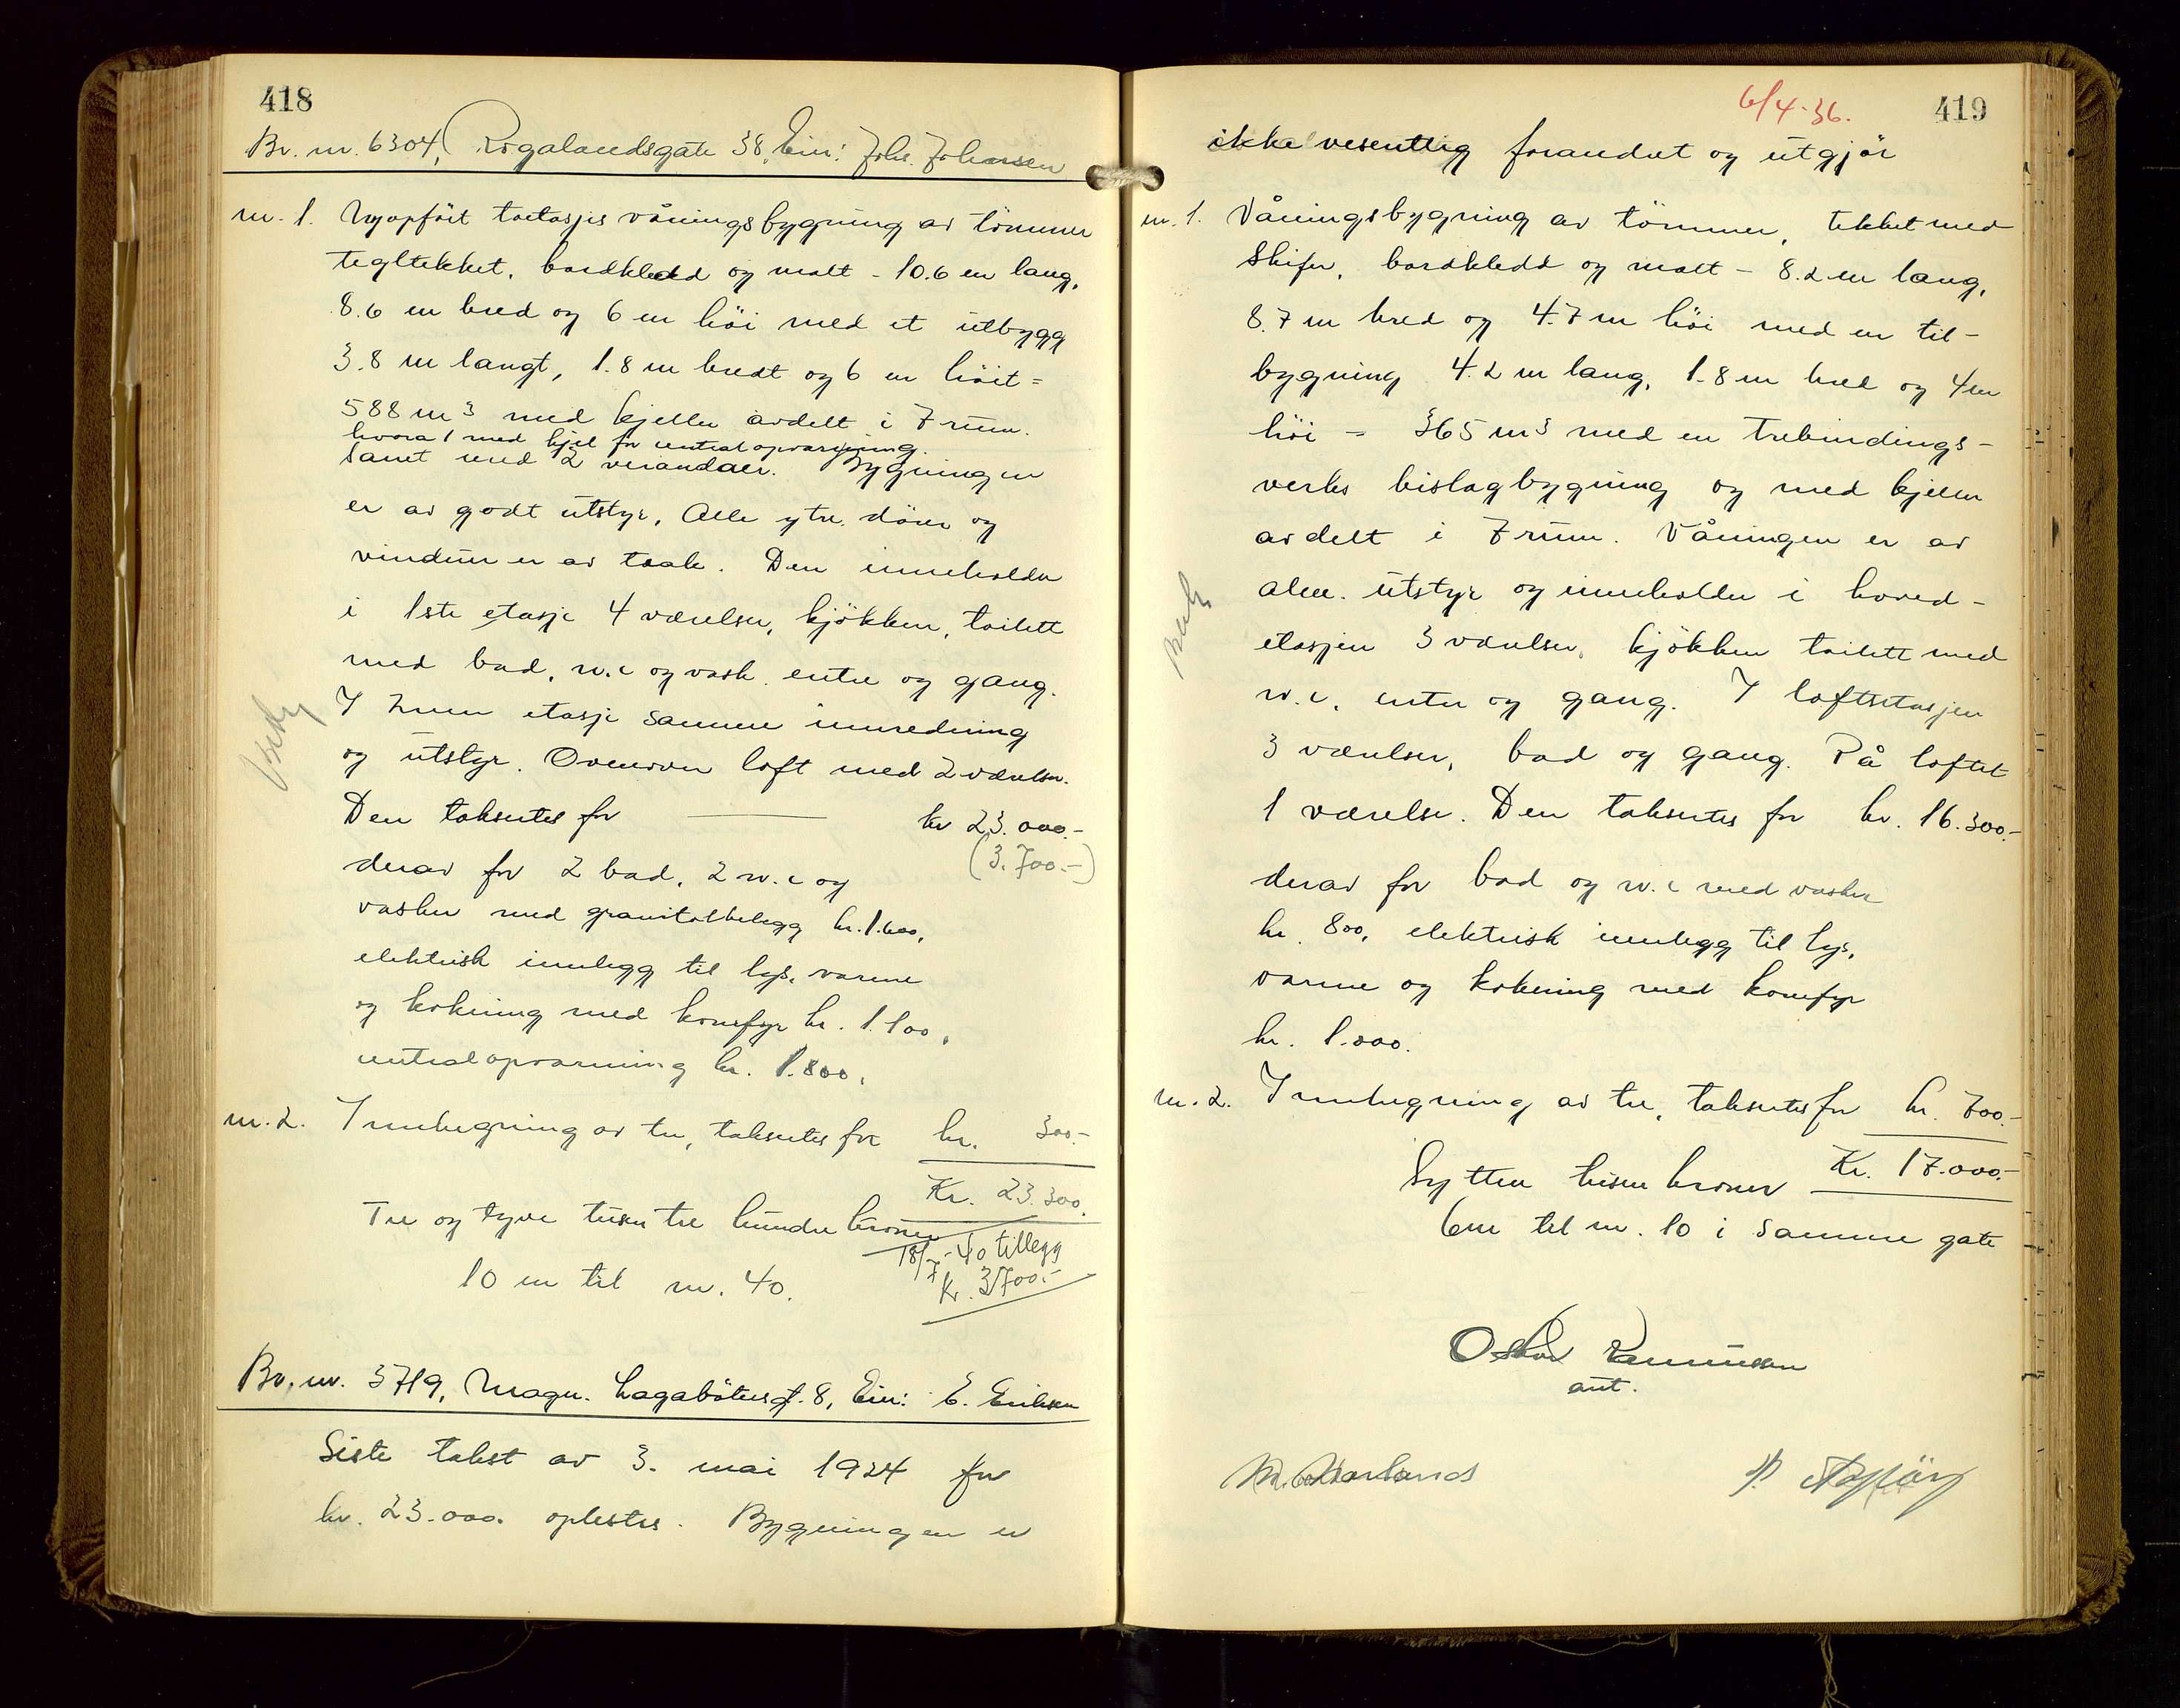 418
Br. nr. 6304, Rogalandsgate 38, Eier: Johs. Johansen
nr. 1. Nyopført toetasjes våningsbygning av tömmer
tegltekket, bordkledd og malt - 10.6 m lang,
8.6 m bred og 6 m höi med et utbygg
3.8 m langt, 1.8 m bredt og 6 m höit =
588 m3 med kjeller avdelt i 7 rum.
hvorav 1 med kjel for centralopvarmning.
samt med 2 verandaer. Bygningen
er av godt utstyr. Alle ytre dörer og
vinduer er av teak. Den inneholder
i 1ste etasje 4 værelser, kjökken, toilett
med bad, w.c og vask, entre og gang.
I 2nen etasje samme innredning
og utstyr. Ovenover loft med 2 værelser.
Den takseres for kr 23.000.-
(3.700.-)
derav for 2 bad, 2 w.c og
vasker med granitolbelegg kr. 1.600,
elektrisk innlegg til lys, varme
og kokning med komfyr kr. 1.100,
centralopvarming kr. 1.800.
nr. 2. Innhegning av tre, takseres for kr. 300.-
Kr. 23.300.
Tre og tyve tusen tre hundre kroner
18/7-40 tillegg
kr. 3700.-
10 m til nr. 40.
Br. nr. 3719, Magn. Lagabötersgt. 8, Eier: E. Eriksen
Siste takst av 3. mai 1924 for
kr. 23.000. oplestes. Bygningen er
6/4-36.
419
ikke vesentlig forandret og utgjör
nr. 1. Våningsbygning av tömmer, tekket med
Skifer, bordkledd og malt - 8.2 m lang,
8.7 m bred og 4.7 m höi med en til-
bygning 4.2 m lang, 1.8 m bred og 4 m
höi = 365 m3 med en trebindings-
verks bislagbygning og med kjeller
avdelt i 7 rum. Våningen er av
alm. utstyr og inneholder i hoved-
etasjen 3 værelser, kjökken toilett med
w.c, entre og gang. I loftsetasjen
3 værelser, bad og gang. På loftet
1 værelse. Den takseres for kr. 16.300.-
derav for bad og w.c med vasker
kr. 800, elektrisk innlegg til lys,
varme og kokning med komfyr
kr. 1.000.
nr. 2. Innhegning av tre, takseres for kr. 700.-
Sytten tusen kroner Kr. 17.000.-
6 m til nr. 10 i samme gate
Oskar Rasmussen
ant.